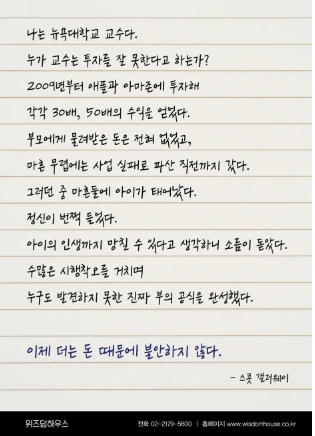 나는 뉴욕대학교 교수다.
누가 교수는 투자를 잘 못한다고 하는가?
2009년부터 애플과 아마존에 투자해
각각 30배, 50배의 수익을 얻었다.
부모에게 물려받은 돈은 전혀 없었고,
마흔 무렵에는 사업 실패로 파산 직전까지 갔다.
그러던 중 마흔둘에 아이가 태어났다.
정신이 번쩍 들었다.
아이의 인생까지 망칠 수 있다고 생각하니 소름이 돋았다.
수많은 시행착오를 거치며
누구도 발견하지 못한 진짜 부의 공식을 완성했다.
이제 더는 돈 때문에 불안하지 않다.
- 스콧 갤러웨이
위즈덤하우스 전화 02-2179-5600 | 홈페이지 www.wisdomhouse.co.kr